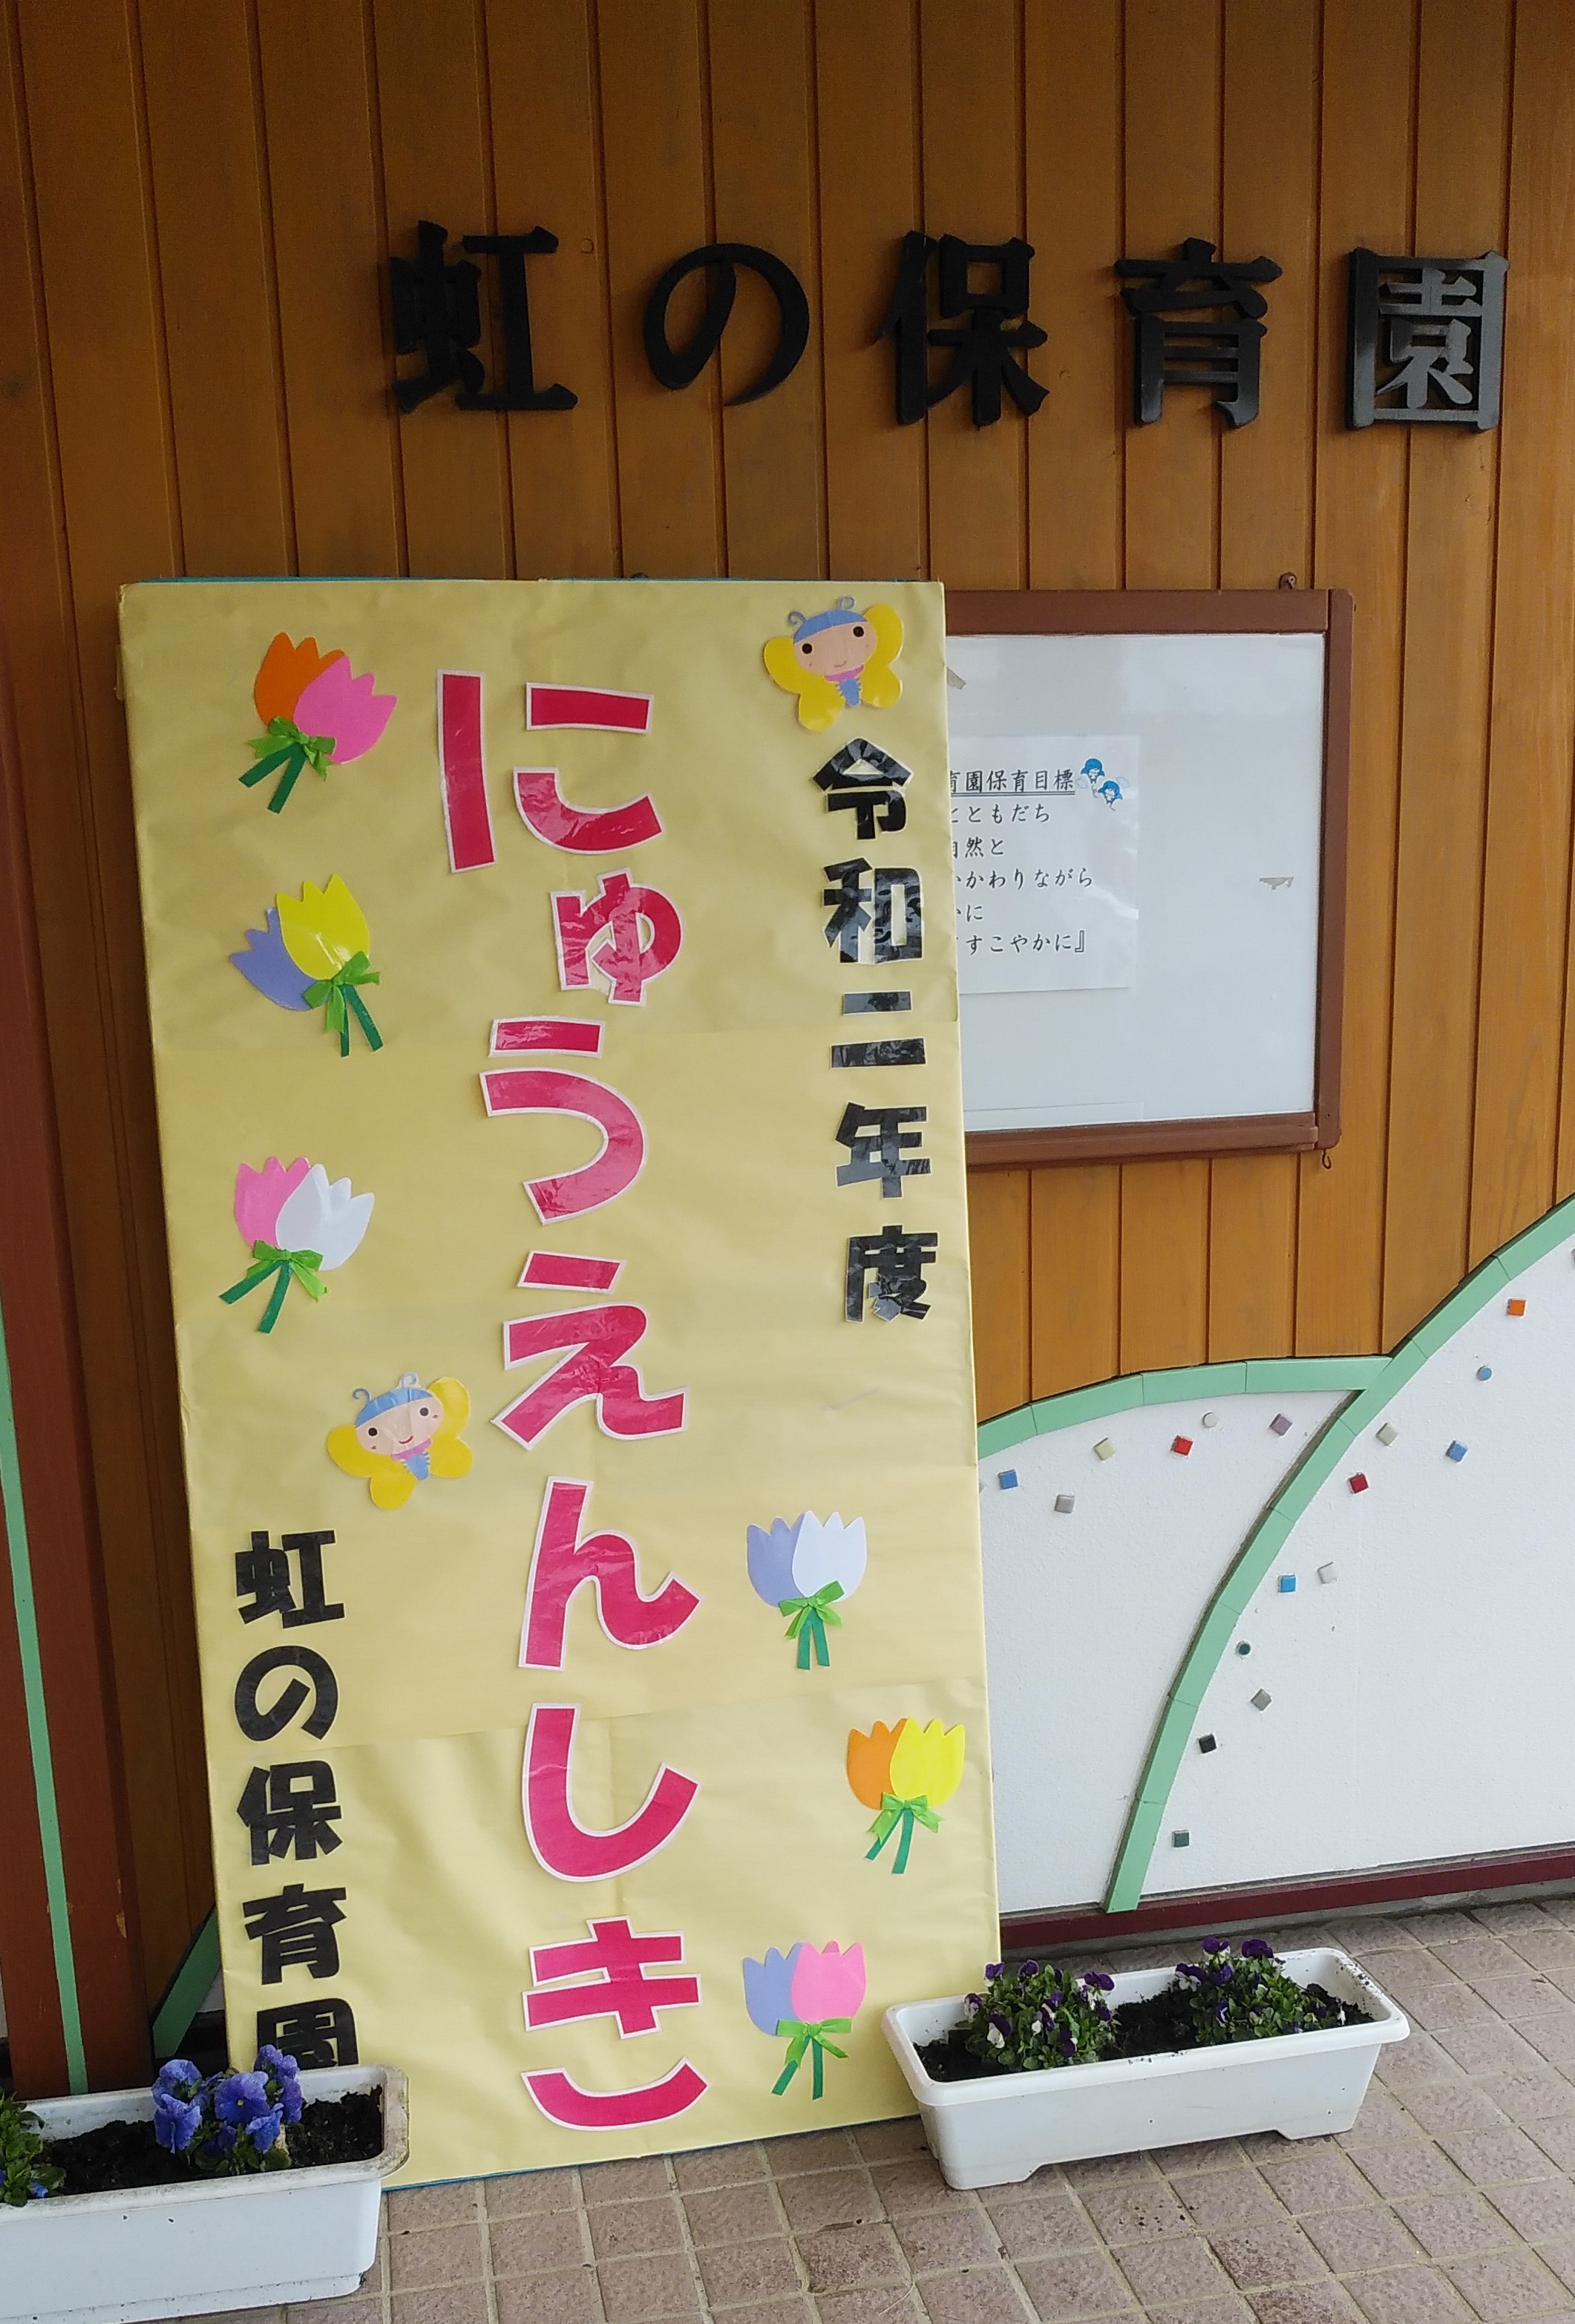 虹の保育園
令和二年度
にゅうえんしき
虹の保育園
育園保育目標
ともだち
自然と
かかわりながら
に
すこやかに』